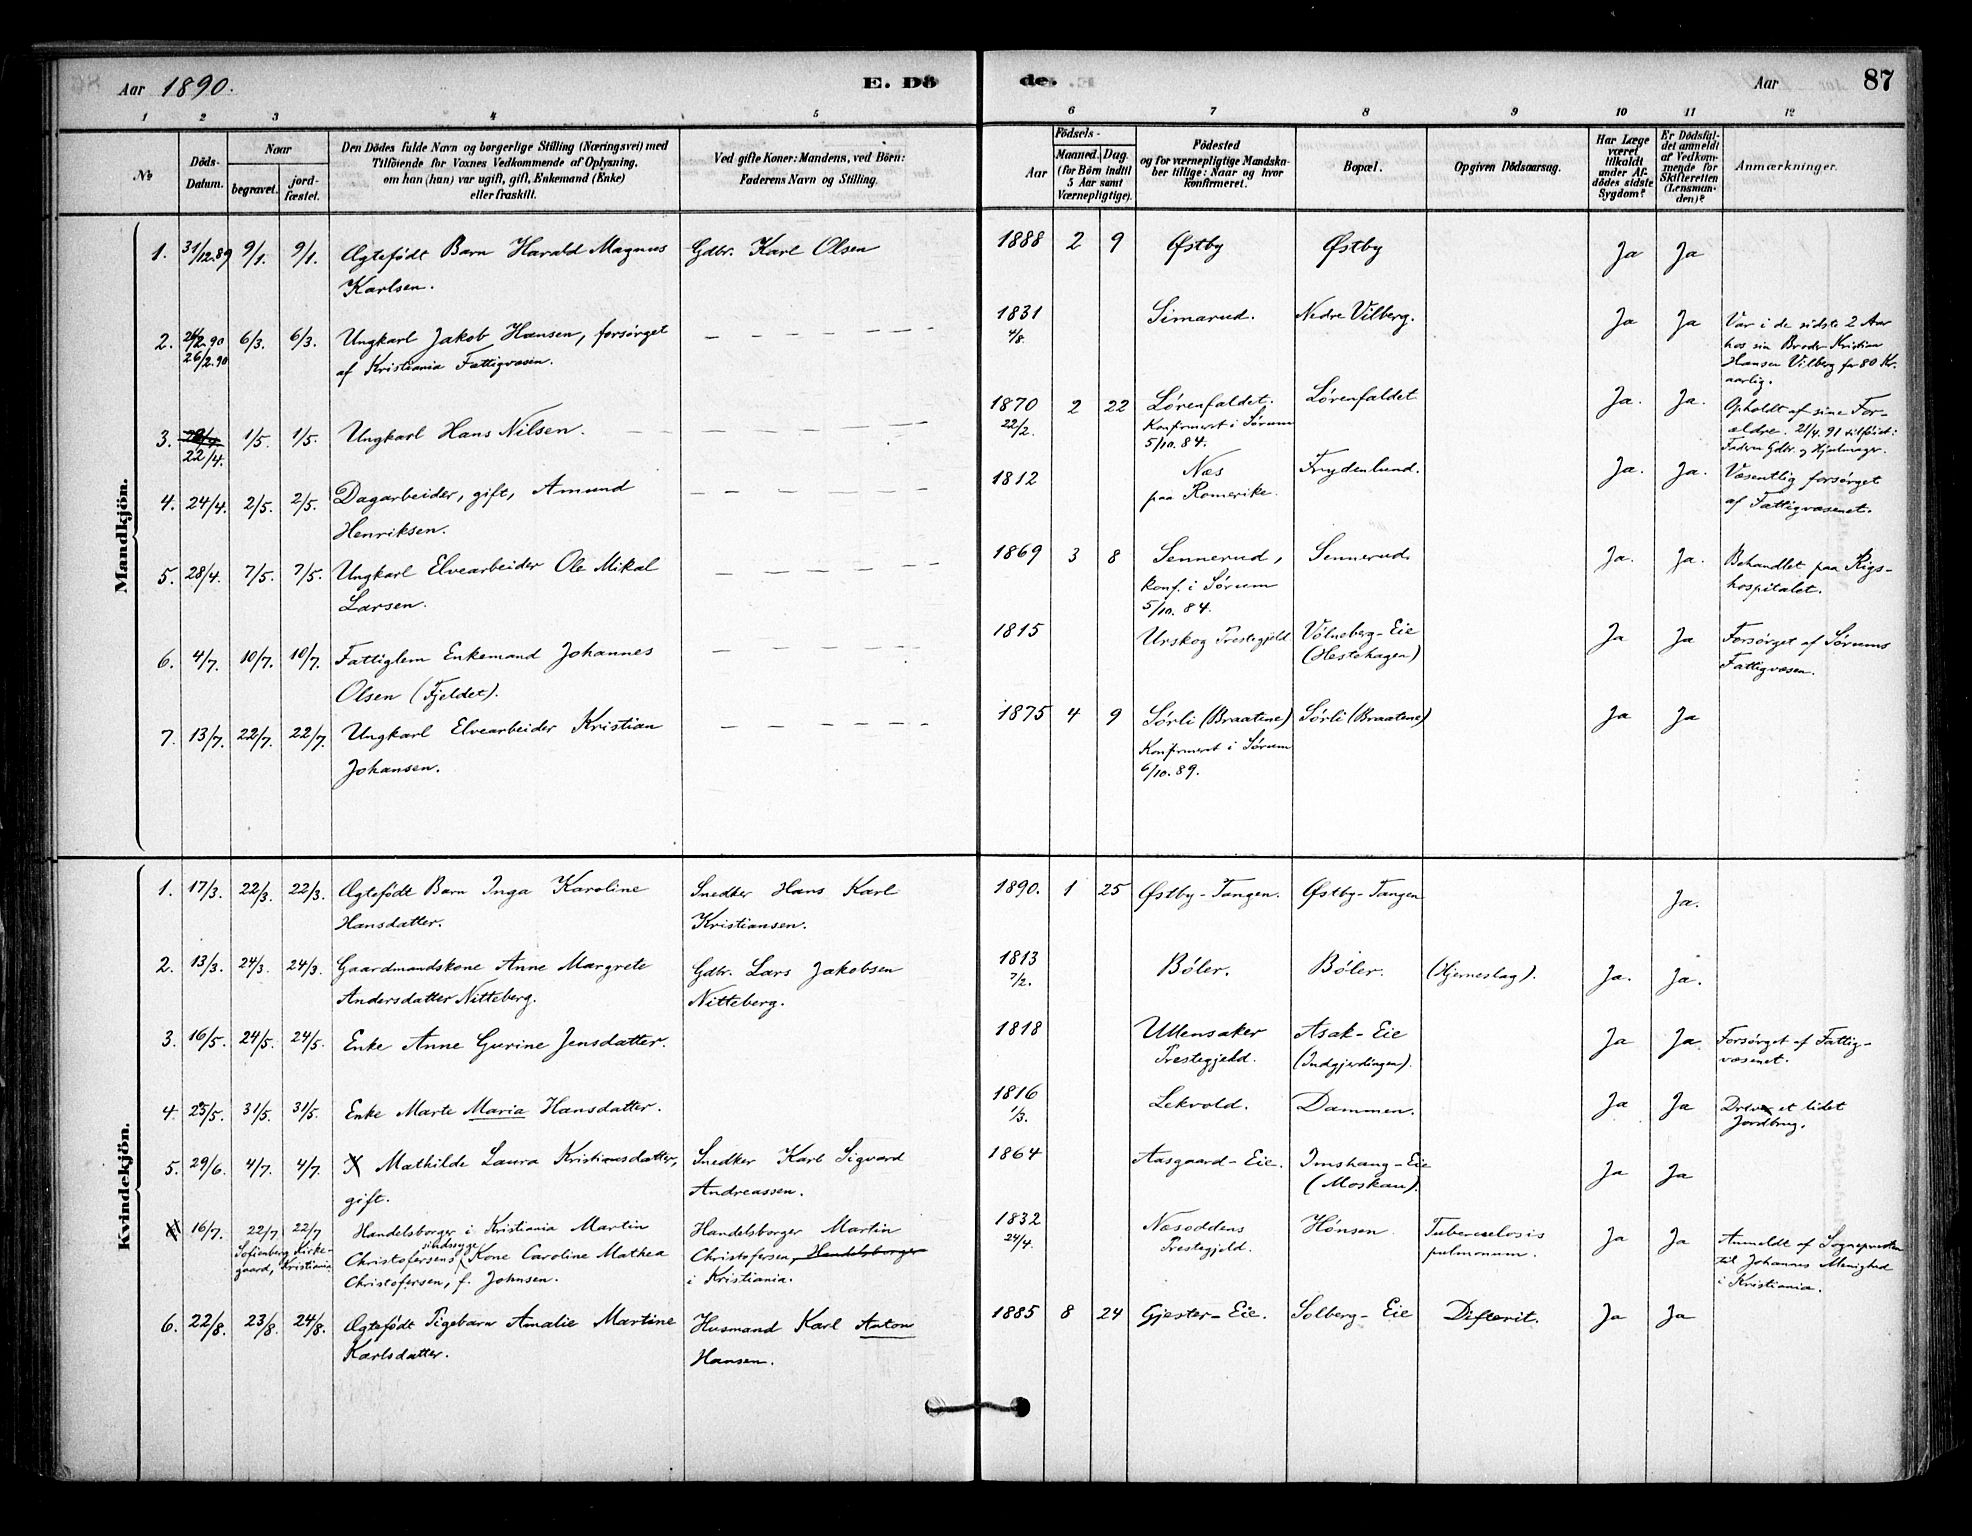 Aar 1890.
E. Döde.
Aar
87
1 2 3 4 5 6 7 8 9 10 11 12
No
Döds-Datum.
Naar
begravet.
jord-fæstet.
Den Dödes fulde Navn og borgerlige Stilling (Næringsvei) med
Tilföiende for Voxnes Vedkommende af Oplysning,
om han (hun) var ugift, gift, Enkemand (Enke)
eller fraskilt.
Ved gifte Koner: Mandens, ved Börn:
Faderens Navn og Stilling.
Födsels-
Aar
Maaned. Dag.
(for Börn indtil
5 Aar samt
Værnepligtige).
Födested
og for værnepligtige Mandska-
ber tillige: Naar og hvor
konfirmeret.
Bopæl.
Opgiven Dödsaarsag.
Har Læge
været
tilkaldt
under Af-
dödes sidste
Sygdom?
Er Dödsfal-
det anmeldt
af Vedkom-
mende for
Skifteretten
(Lensman-
den)?
Anmærkninger.
Mandkjön.
1. 31/12.89 9/1. 9/1. Ægtefödt Barn Harald Magnus Gdbr. Karl Olsen 1888 2 9 Østby Østby Ja Ja
Karlsen.
2. 6/3. 6/3. Ungkarl Jakob Hansen, forsørget — — — — 1831 Simarud. Nedre Vilberg. Ja Ja Var i de sidste 2 Aar
26/2.90 af Kristiania Fattigvæsen. 4/8. hos sin Broder Kristian
Hansen Vilberg for 80 Kr.
aarlig.
3. 1/5. 1/5. Ungkarl Hans Nilsen. — — — — 1870 2 22 Lørenfaldet. Lørenfaldet Ja. Ja. Opholdt af sine For-
22/4. 22/2. Konfirmeret i Sørum ældre. 21/4.91 tilføiet:
5/10.84. Faderen Gdbr. og Hjulmager.
4. 24/4. 2/5. 2/5. Dagarbeider, gift, Amund — — — — 1812 Næs Frydenlund. Ja. Ja. Væsentlig forsørget
Henriksen. paa Romerike. af Fattigvæsenet.
5. 28/4. 7/5. 7/5. Ungkarl Elvearbeider Ole Mikal — — — — 1869 3 8 Sennerud, Sennerud. Ja. Ja. Behandlet paa Rigs-
Larsen. konf. i Sørum hospitalet.
5/10.84.
6. 4/7. 10/7. 10/7. Fattiglem Enkemand Johannes — — — — 1815 Urskog Prestegjeld Vølneberg-Eie Ja Ja Forsørget af Sørums
Olsen (Fjeldet). (Hestehagen) Fattigvæsen.
7. 13/7. 22/7. 22/7. Ungkarl Elvearbeider Kristian — — — — 1875 4 9 Sørli (Braatene) Sørli (Braatene) Ja Ja
Johansen. Konfirmeret i Sørum
6/10.89.
Kvindekjön.
1. 17/3. 22/3. 22/3. Ægtefödt Barn Inga Karoline Snedker Hans Karl 1890. 1 25 Østby-Tangen. Østby-Tangen Ja.
Hansdatter. Kristiansen.
2. 13/3. 24/3. 24/3. Gaardmandskone Anne Margrete Gdbr. Lars Jakobsen 1813 Bøler. Bøler. (Hjerneslag). Ja. Ja.
Andersdatter Nitteberg. Nitteberg. 7/2.
3. 16/5. 24/5. 24/5. Enke Anne Gurine Jensdatter. 1818 Ullensaker Asak-Eie Ja Ja Forsørget af Fattig-
Prestegjeld. (Indgjerdingen). væsenet.
4. 25/5. 31/5. 31/5. Enke Marte Maria Hansdatter. 1816 Lekvold. Dammen. Ja Ja Drev et lidet
1/3. Jordbrug.
5. 29/6. 4/7. 4/7. Mathilde Laura Kristiansdatter, Snedker Karl Sigvard 1864 Aasgaard-Eie. Imshaug-Eie Ja Ja
gift. Andreassen. (Moskau).
16/7. 22/7 22/7 Handelsborger i Kristiania Martin Handelsborger Martin 1832 Næsoddens Hønsen. Tuberculosis Ja Ja Anmeldt af Sognepresten
Sofienberg Kirke- Christofersens sindssyge Kone Caroline Mathea Christofersen, Handelsborger 24/4. Prestegjeld. pulmonum. til Johannes Menighed
gaard, Kristiania Christofersen, f. Johnsen. i Kristiania. i Kristiania.
6. 22/8. 23/8. 24/8. Ægtefödt Pigebarn Amalie Martine Husmand Karl Anton 1885 8 24 Gjester-Eie. Solberg-Eie Difterit. Ja Ja
Karlsdatter. Hansen.